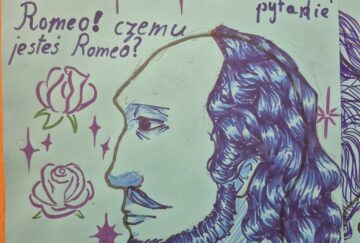 Romeo! czemu
jesteś Romeo?
pytanie